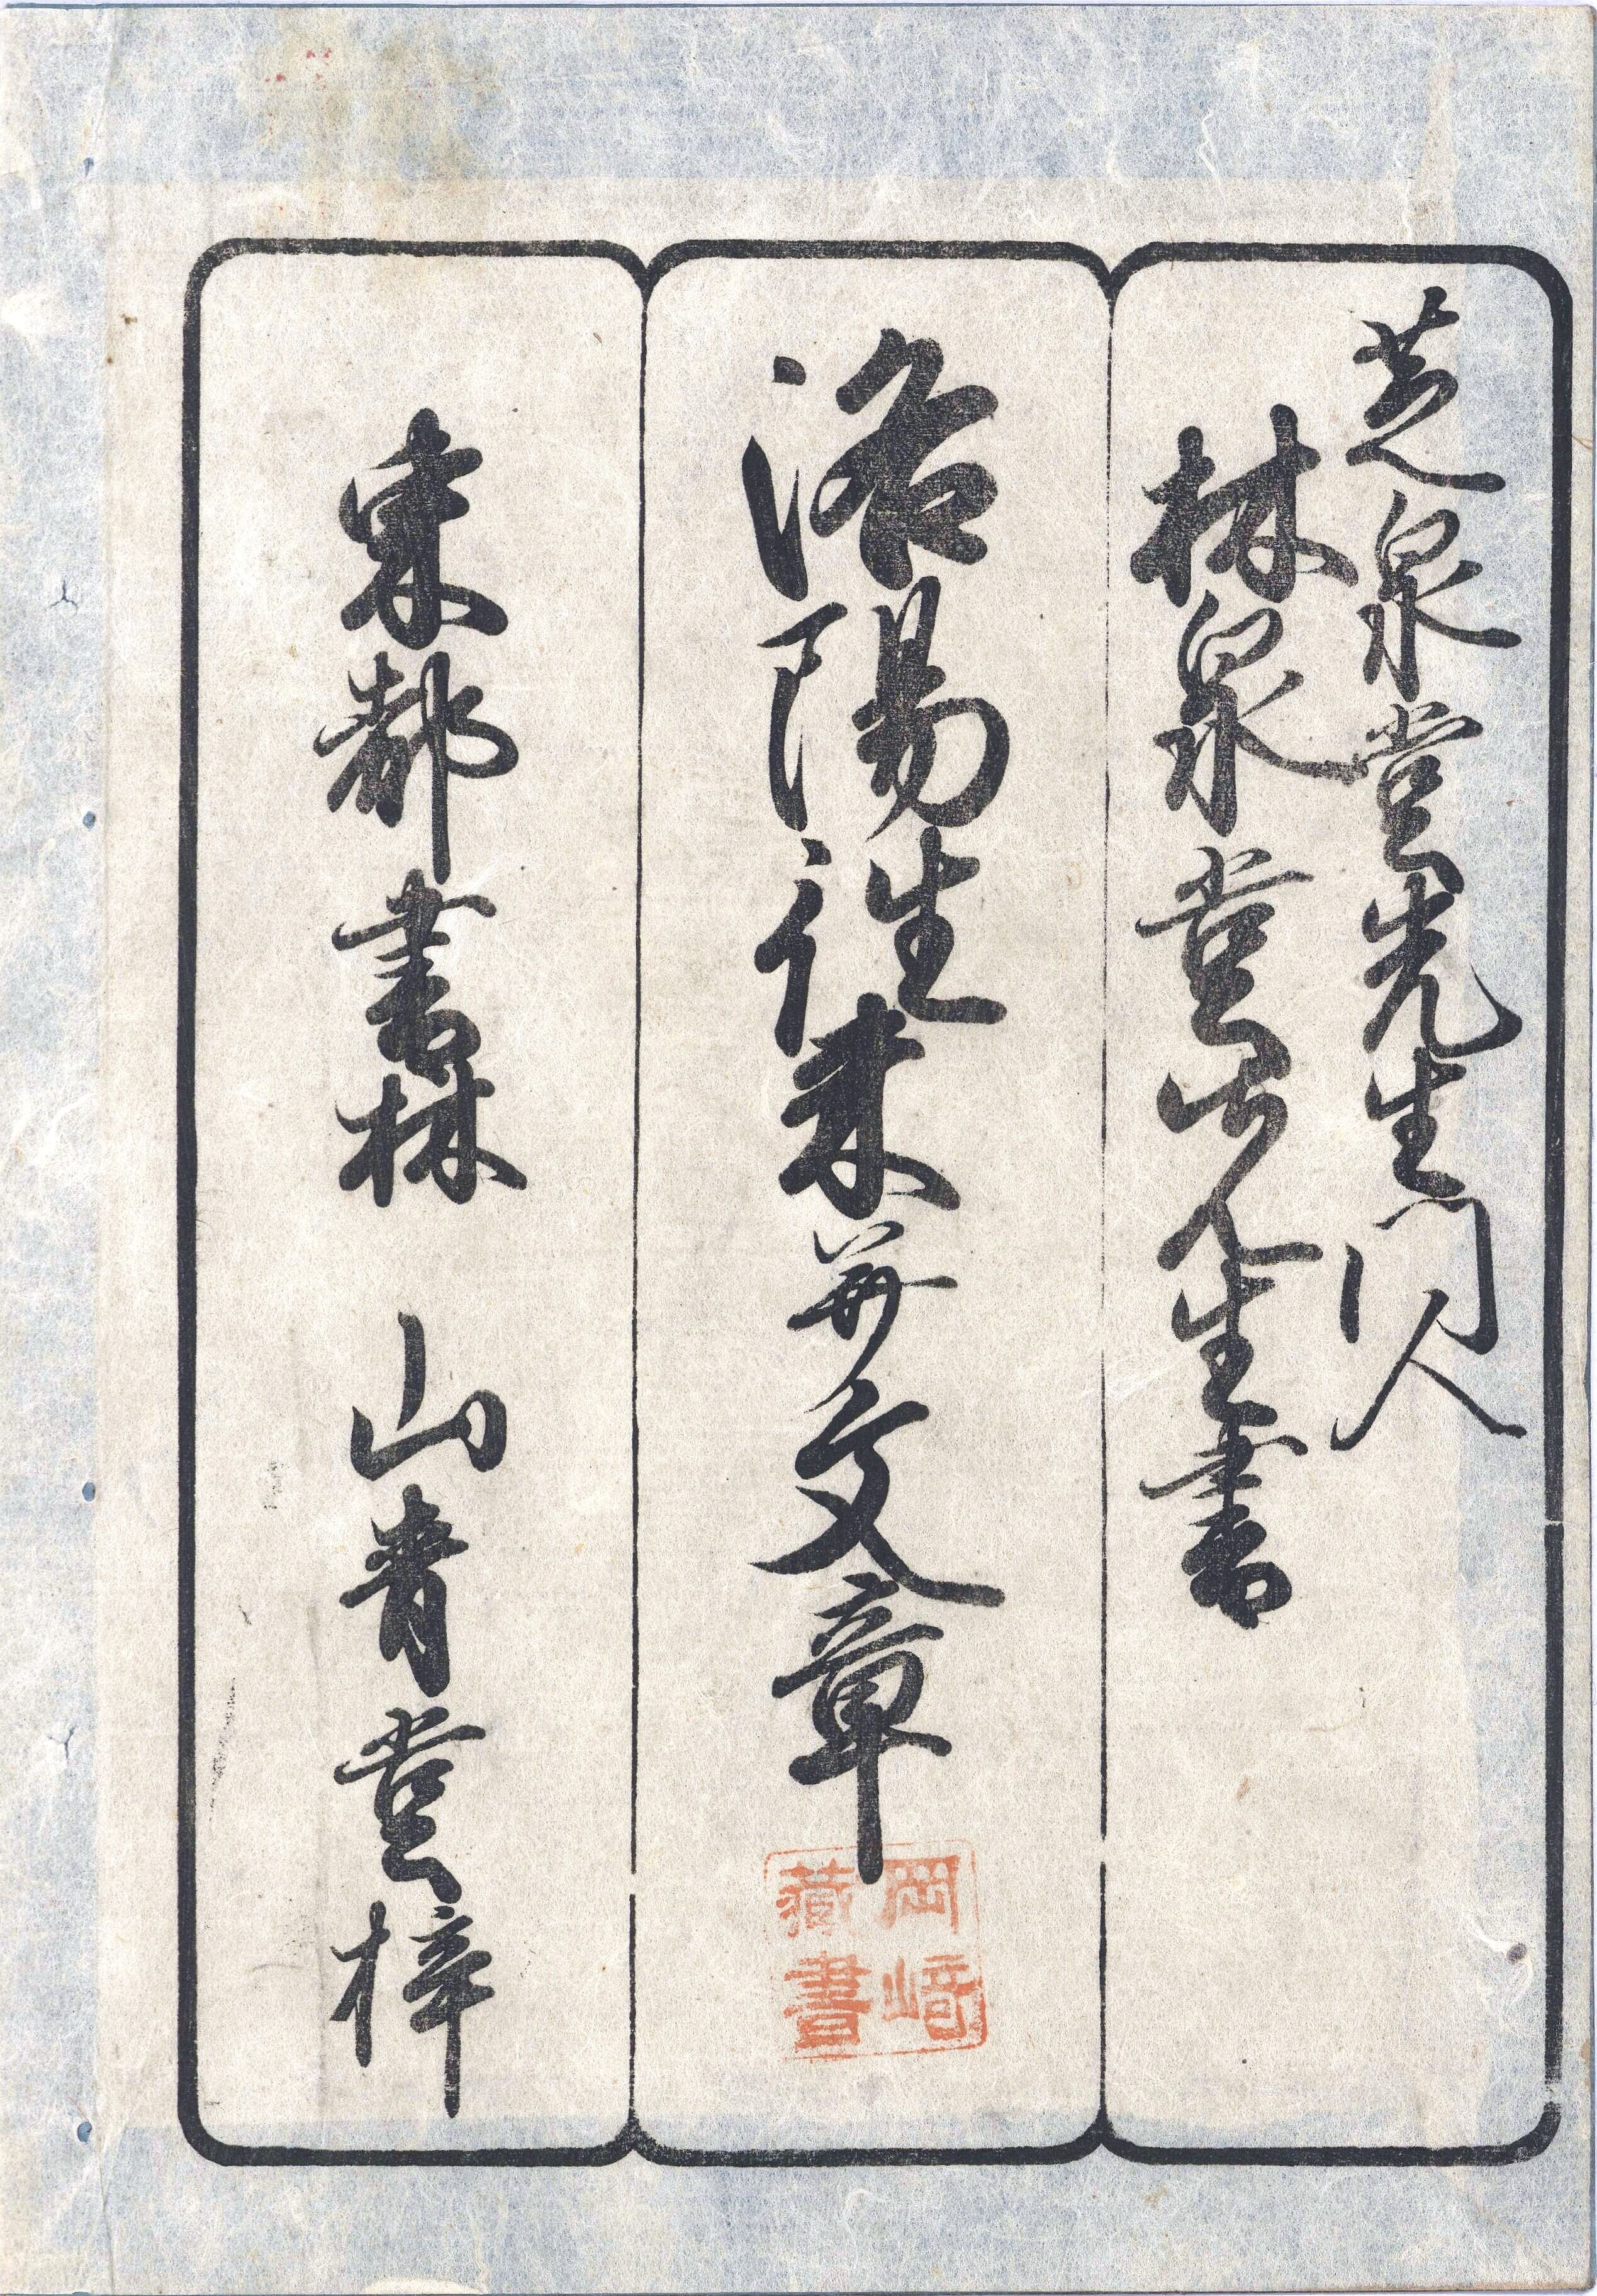 芝泉堂先生門人
林泉堂先生書
洛陽往来并文章
東都書林 山青堂梓
岡﨑
藏書